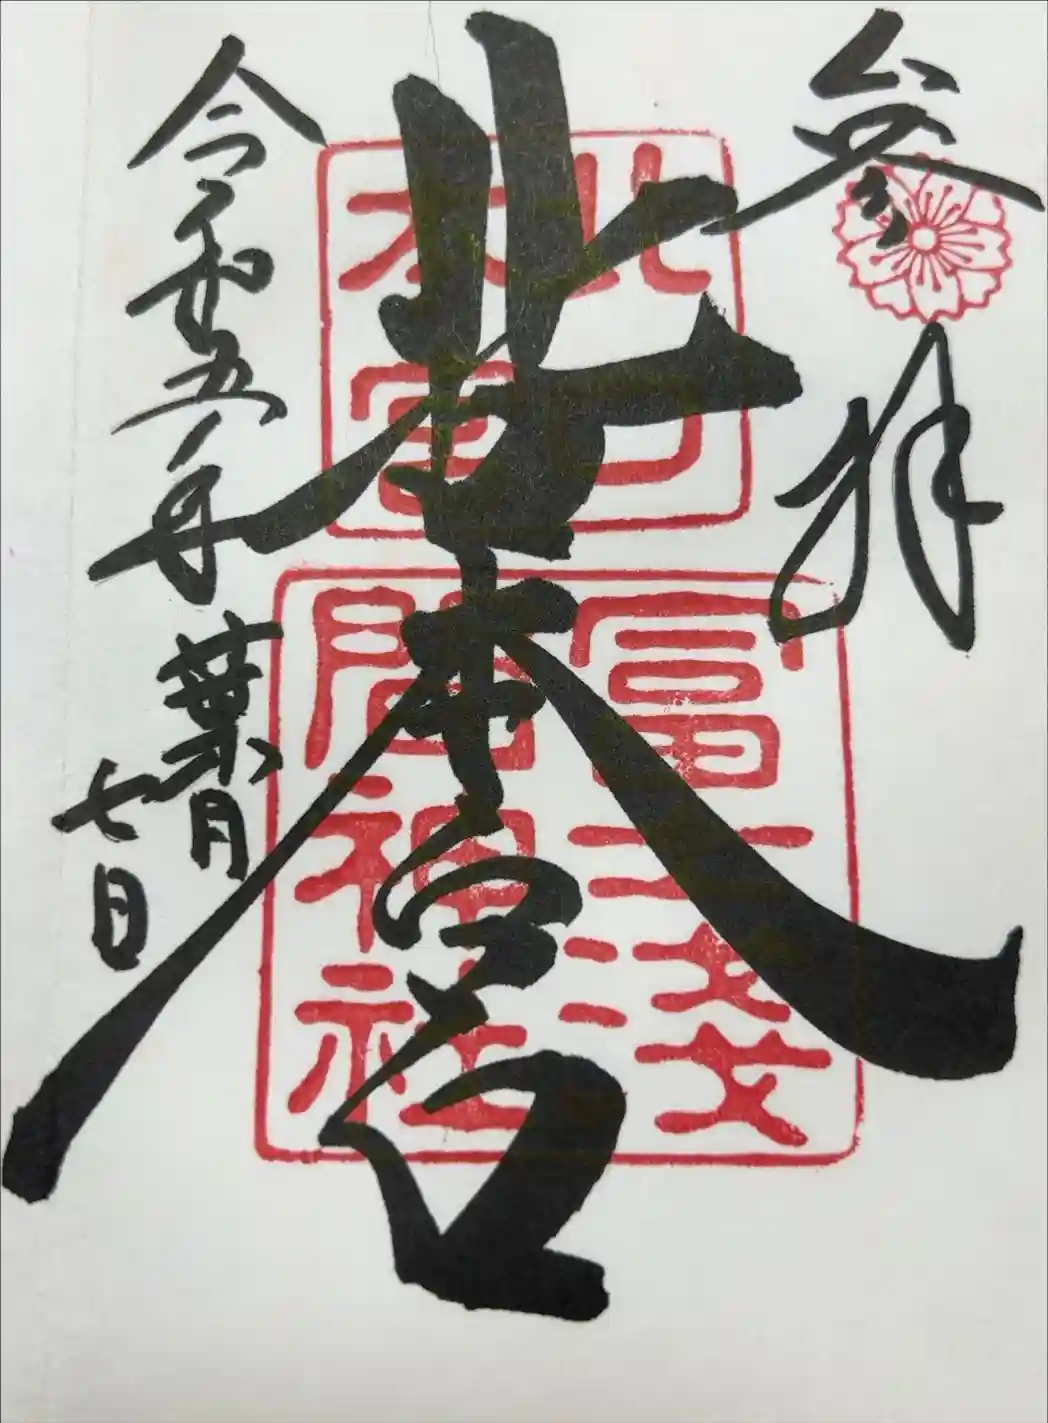 参拝
北口本宮
北口
本宮
冨士淺
間神社
令和五年
葉月
七日